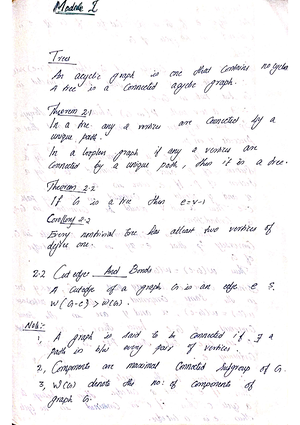 Module 2
Trees
An acyclic graph is one that contains no cycles
A tree is a connected acyclic graph.
Theorem 2.1
In a tree any 2 vertices are connected by a
unique path.
In a loopless graph if any 2 vertices are
connected by a unique path, then it is a tree.
Theorem 2.2
If G is a tree then e=v-1
Corollary 2.2
Every nontrivial tree has atleast two vertices of
degree one.
2.2 Cut edges And Bonds
A cutedge of a graph G is an edge e
w(G-e) > w(G).
Note:-
1, A graph is said to be connected if ∃ a
path in b/w every pair of vertices.
2, Components are maximal connected subgroup of G.
3, w(G) denote the no: of components of
graph G.